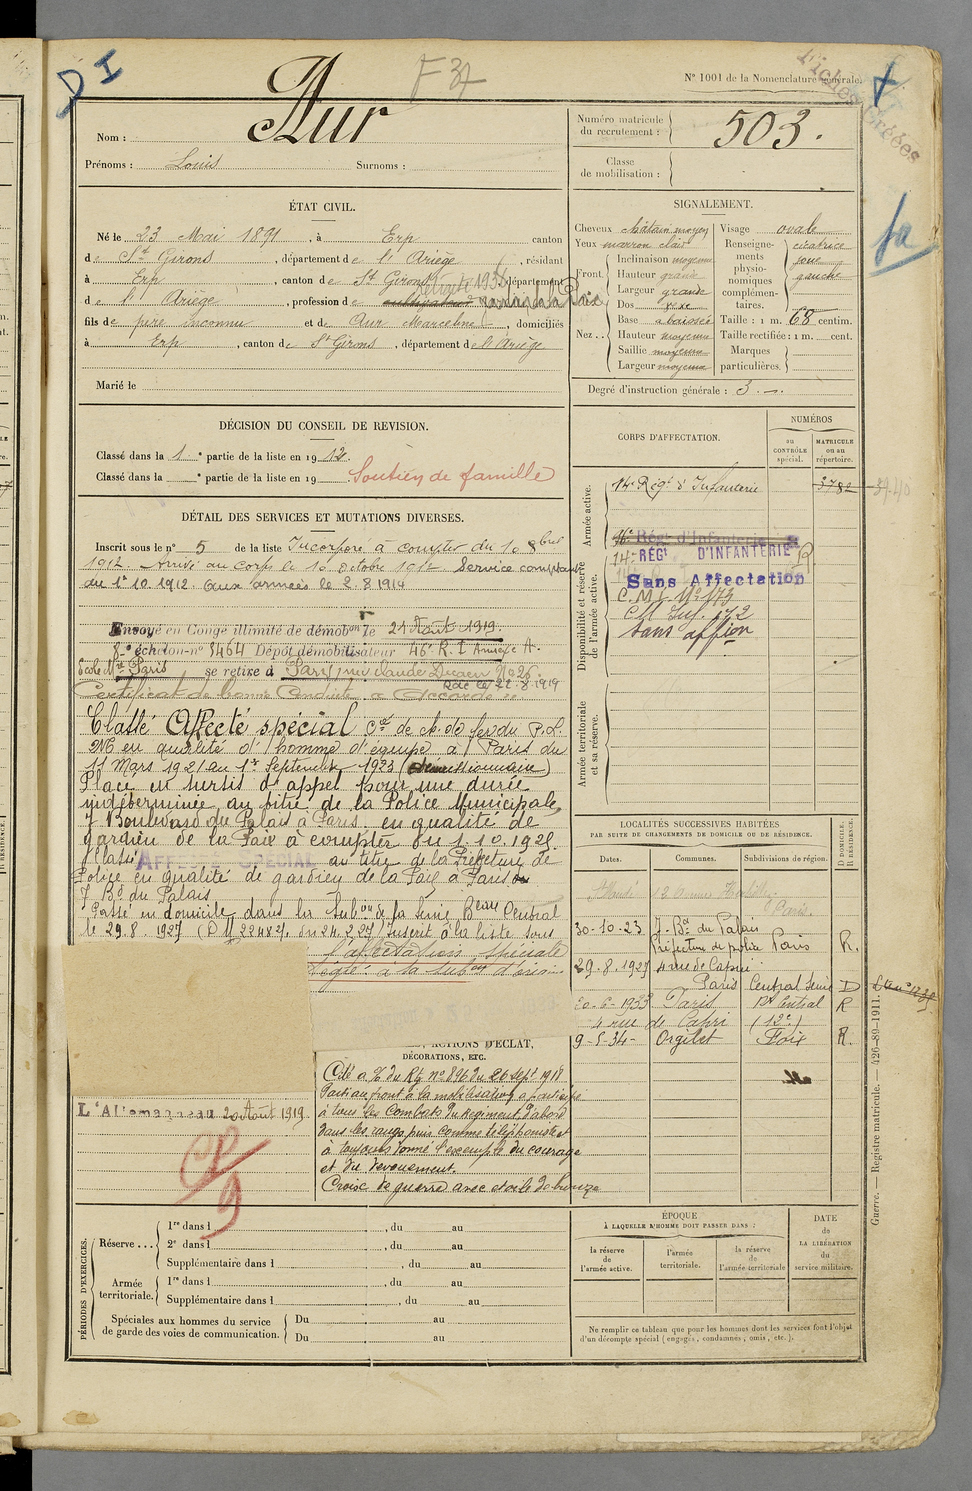 D I
F 37
N° 1001 de la Nomenclature générale.
Fiches
Nom : Aur
Prénoms : Louis Surnoms :
Numéro matricule du recrutement : 503.
Classe de mobilisation :
ÉTAT CIVIL.
Né le 23 Mai 1891, à Erp canton
de St Girons, département de l'Ariège, résidant
à Erp, canton de St Girons département
d e l'Ariège, profession de cultivateur gardien de la Paix
retraité
fils de père inconnu et de Aur Marceline, domiciliés
à Erp, canton de St Girons, département de l'Ariège
Marié le
SIGNALEMENT.
Cheveux châtain moyen
Yeux marron clair
Front. Inclinaison moyenne
Hauteur grande
Largeur grande
Nez.. Dos rexe
Base abaissée
Hauteur moyenne
Saillie moyenne
Largeur moyenne
Visage ovale
Renseignements physionomiques complémentaires. cicatrice joue gauche
Taille : 1 m. 68 centim.
Taille rectifiée : 1 m. cent.
Marques particulières.
Degré d'instruction générale : 3
DÉCISION DU CONSEIL DE REVISION.
Classé dans la 1e partie de la liste en 1912.
Classé dans la e partie de la liste en 19 Soutien de famille
DÉTAIL DES SERVICES ET MUTATIONS DIVERSES.
Inscrit sous le n° 5 de la liste Incorporé à compter du 10 8bre
1912. Arrivé au corps le 10 octobre 1912. Service comptant
du 1er 10.1912. Aux armées le 2.8.1914
Envoyé en Congé illimité de démobon le 21 Août 1919
8e échelon n° 8464 Dépôt démobilisateur 46e R.I Annexe A.
Ecole Mre Paris se retire à Paris, N° 26.
Rdc le 22.8.1919
Certificat de bonne Conduite a Accordé
Classé Affecté spécial Cie de ch. de fer du P.L.
M en qualité d'homme d'équipe à Paris du
11 Mars 1921 au 1er Septembre 1923 (Démissionnaire)
Placé en sursis d'appel pour une durée
indéterminée au titre de la Police Municipale,
7 Boulevard du Palais à Paris en qualité de
gardien de la Paix à compter du 1.10.1925.
Classé AFFECTÉ SPÉCIAL au titre de la Préfecture de
Police en qualité de gardien de la Paix à Paris
7 Bd du Palais
Passé en domicile dans la Subon de la Seine Beau Central
le 29.8.1927 Inscrit à la liste sous
l'affectation spéciale
à la subon d'origine
CORPS D'AFFECTATION.
NUMÉROS
au CONTRÔLE spécial.
MATRICULE ou au répertoire.
Armée active.
14e Régt d'Infanterie 3782
Disponibilité et réserve de l'armée active.
Régt d'Infanterie
14e RÉGt D'INFANTERIE R
Sans Affectation
C.M.I. N° 173
CM Inf. 172
Sans affion
Armée territoriale et sa réserve.
LOCALITÉS SUCCESSIVES HABITÉES
PAR SUITE DE CHANGEMENTS DE DOMICILE OU DE RÉSIDENCE.
Dates. Communes. Subdivisions de région. D DOMICILE. R RÉSIDENCE.
St Mandé 12 Avenue Paris.
30-10-23 7. Bd du Palais
Préfecture de police Paris R.
29.8.1927 4 rue de Capri
Paris Central Seine D
20-6-1933 Paris Central R
4 rue de Capri (12e)
9-5-34 Orgibet Foix R.
ACTIONS D'ÉCLAT,
DÉCORATIONS, ETC.
Cité O. N° du Rg n° 896 du 26 sept 1918
Parti au front à la mobilisation a participé
à tous les Combats du Régiment, d'abord
dans les rangs puis comme téléphoniste et
à toujours donné l'exemple du courage
et du dévouement.
Croix de guerre avec étoile de bronze
L'Allemagne au 20 Août 1919
PÉRIODES D'EXERCICES.
Réserve ... 1re dans l , du au
2e dans l , du au
Supplémentaire dans l , du au
Armée territoriale. 1re dans l , du au
Supplémentaire dans l , du au
Spéciales aux hommes du service de garde des voies de communication. Du au
Du au
ÉPOQUE
À LAQUELLE L'HOMME DOIT PASSER DANS :
la réserve de l'armée active.
l'armée territoriale.
la réserve de l'armée territoriale
DATE de LA LIBÉRATION du service militaire.
Ne remplir ce tableau que pour les hommes dont les services font l'objet
d'un décompte spécial (engagés, condamnés, omis, etc.).
Guerre. — Registre matricule. — 426-89-1911.